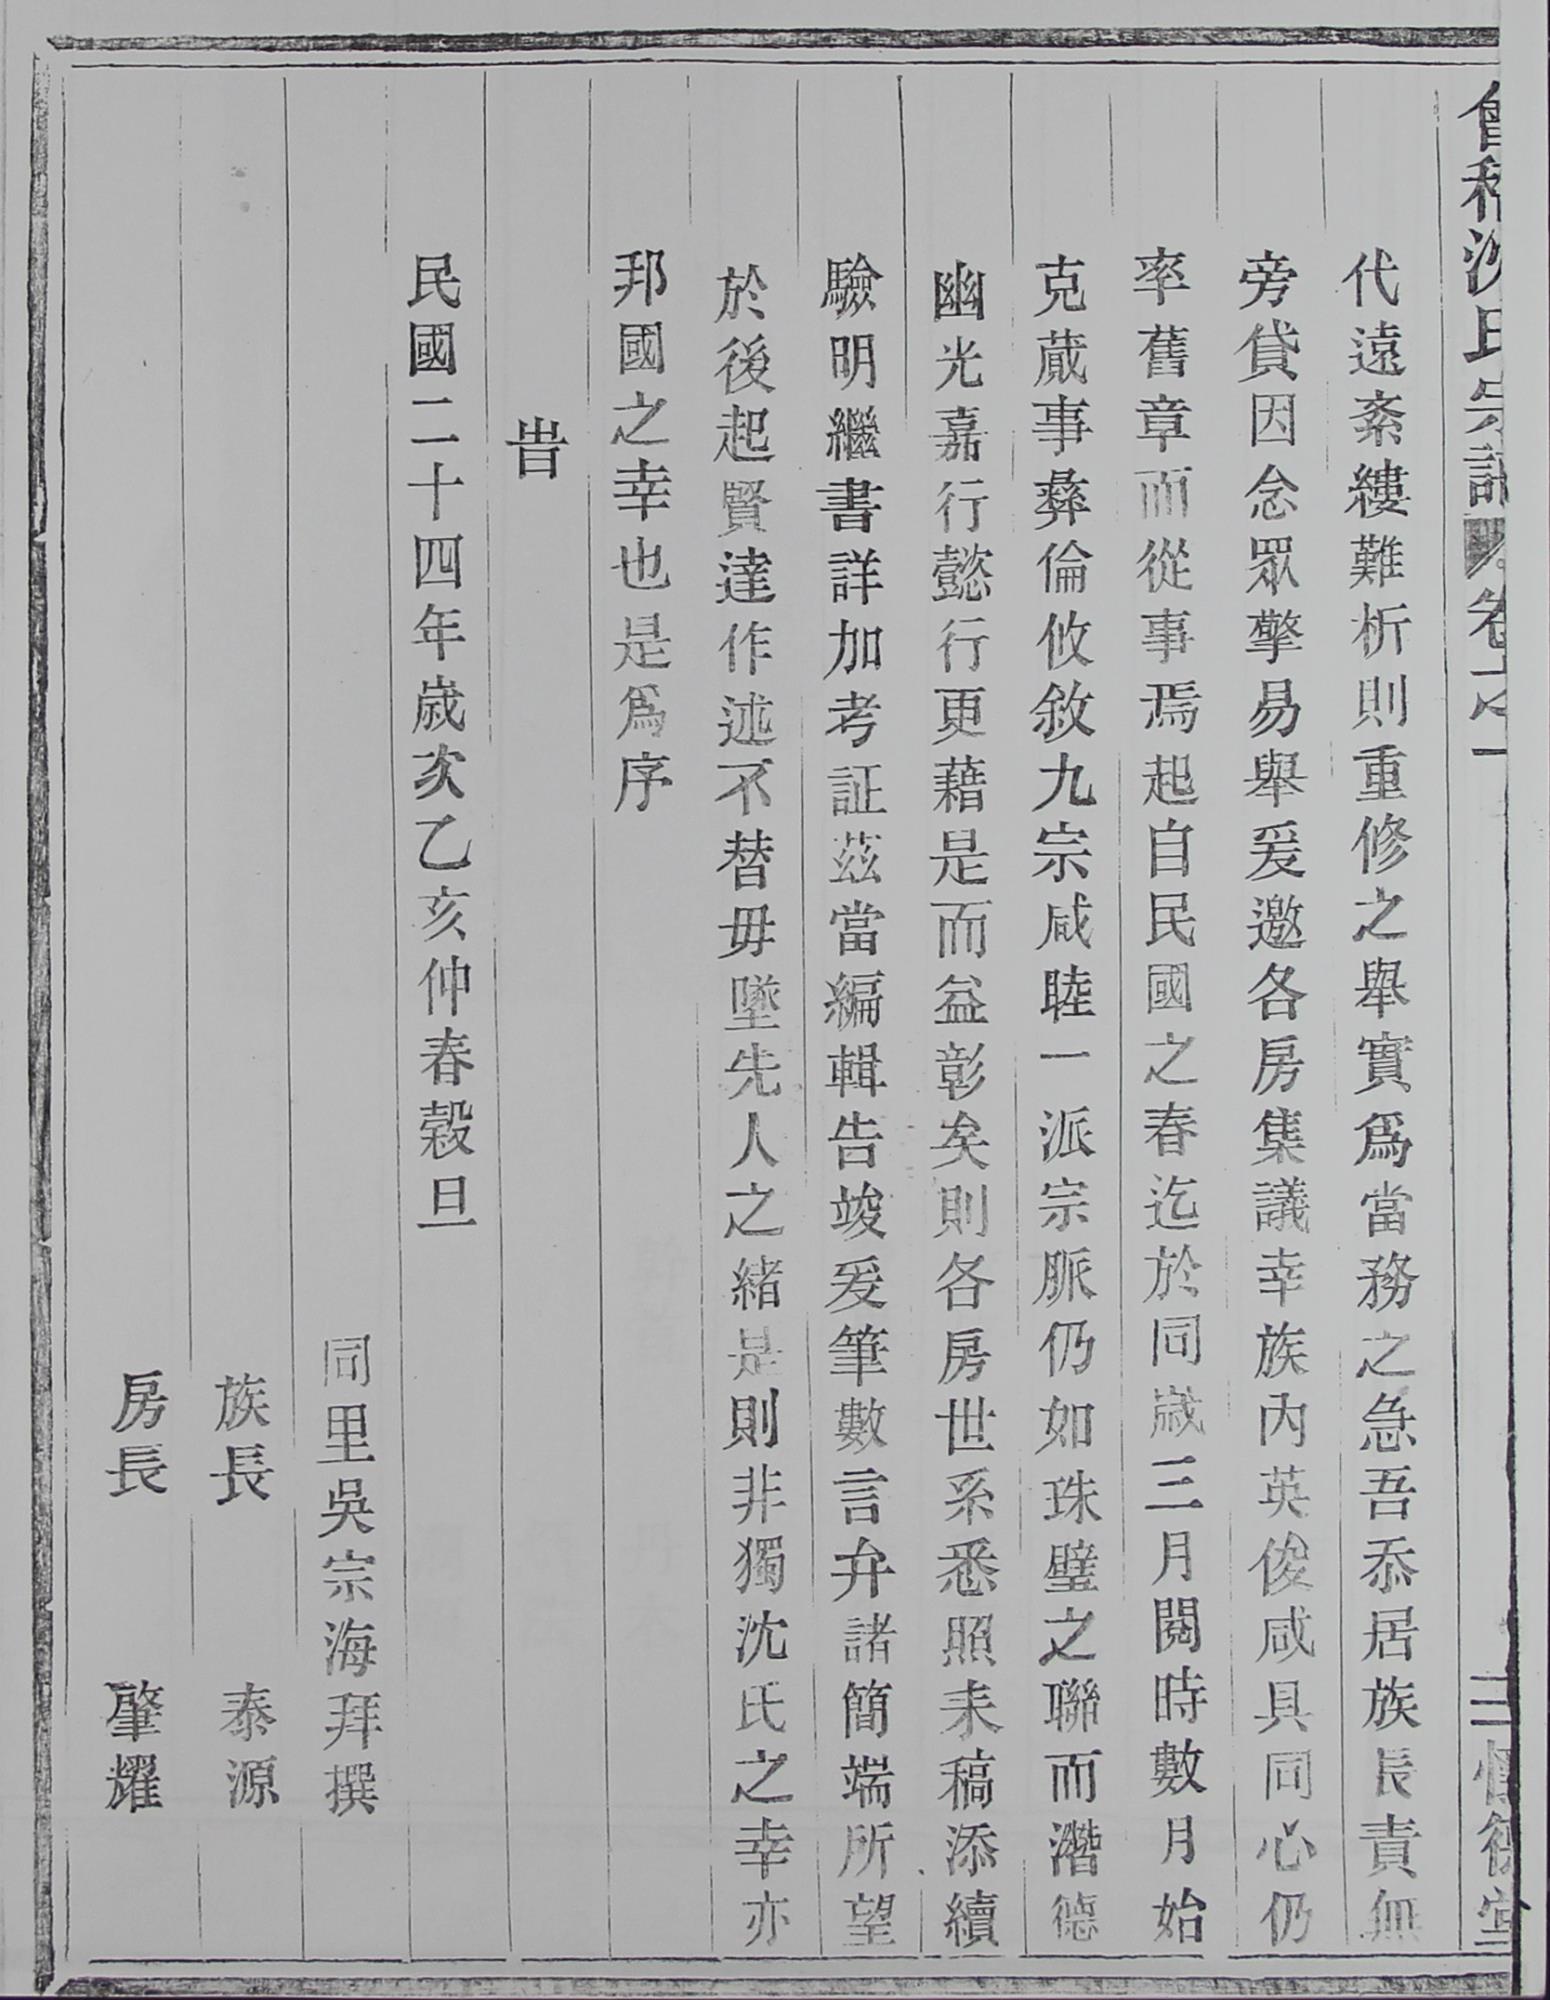 會稽沈氏宗譜 卷之一 三 德堂
代遠紊縷難析則重修之舉實爲當務之急吾忝居族長責無
旁貸因念眾擎易舉爰邀各房集議幸族內英俊咸具同心仍
率舊章而從事焉起自民國之春迄於同歲三月閱時數月始
克蕆事彝倫攸敘九宗咸睦一派宗脈仍如珠璧之聯而潛德
幽光嘉行懿行更藉是而益彰矣則各房世系悉照未稿添續
驗明繼書詳加考証茲當編輯告竣爰筆數言弁諸簡端所望
於後起賢達作述不替毋墜先人之緒是則非獨沈氏之幸亦
邦國之幸也是爲序
旹
民國二十四年歲次乙亥仲春穀旦
同里吳宗海拜撰
族長 泰源
房長 肇耀